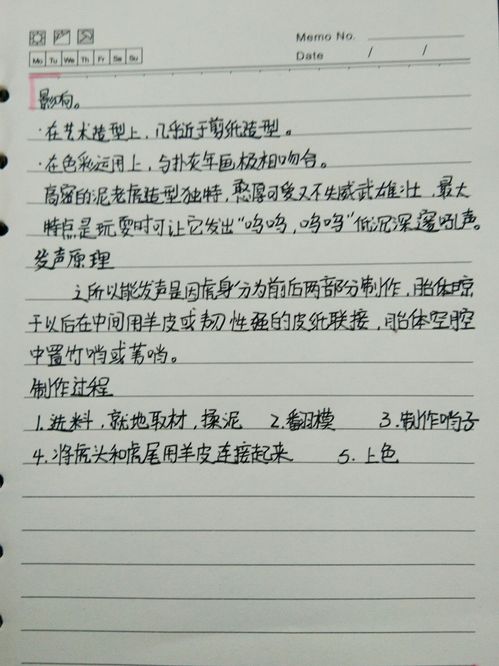 Memo No.
Mo Tu We Th Fr Sa Su
Date / /
影响。
·在艺术造型上，几乎近于剪纸造型。
·在色彩运用上，与扑灰年画极相吻合。
高密的泥老虎造型独特，憨厚可爱又不失威武雄壮，最大
特点是玩耍时可让它发出“呜呜，呜呜”低沉深邃吼声。
发声原理
之所以能发声是因虎身分为前后两部分制作，胎体晾
干以后在中间用羊皮或韧性强的皮纸联接，胎体空腔
中置竹哨或苇哨。
制作过程
1.选料，就地取材，揉泥 2.翻模 3.制作哨子
4.将虎头和虎尾用羊皮连接起来 5.上色